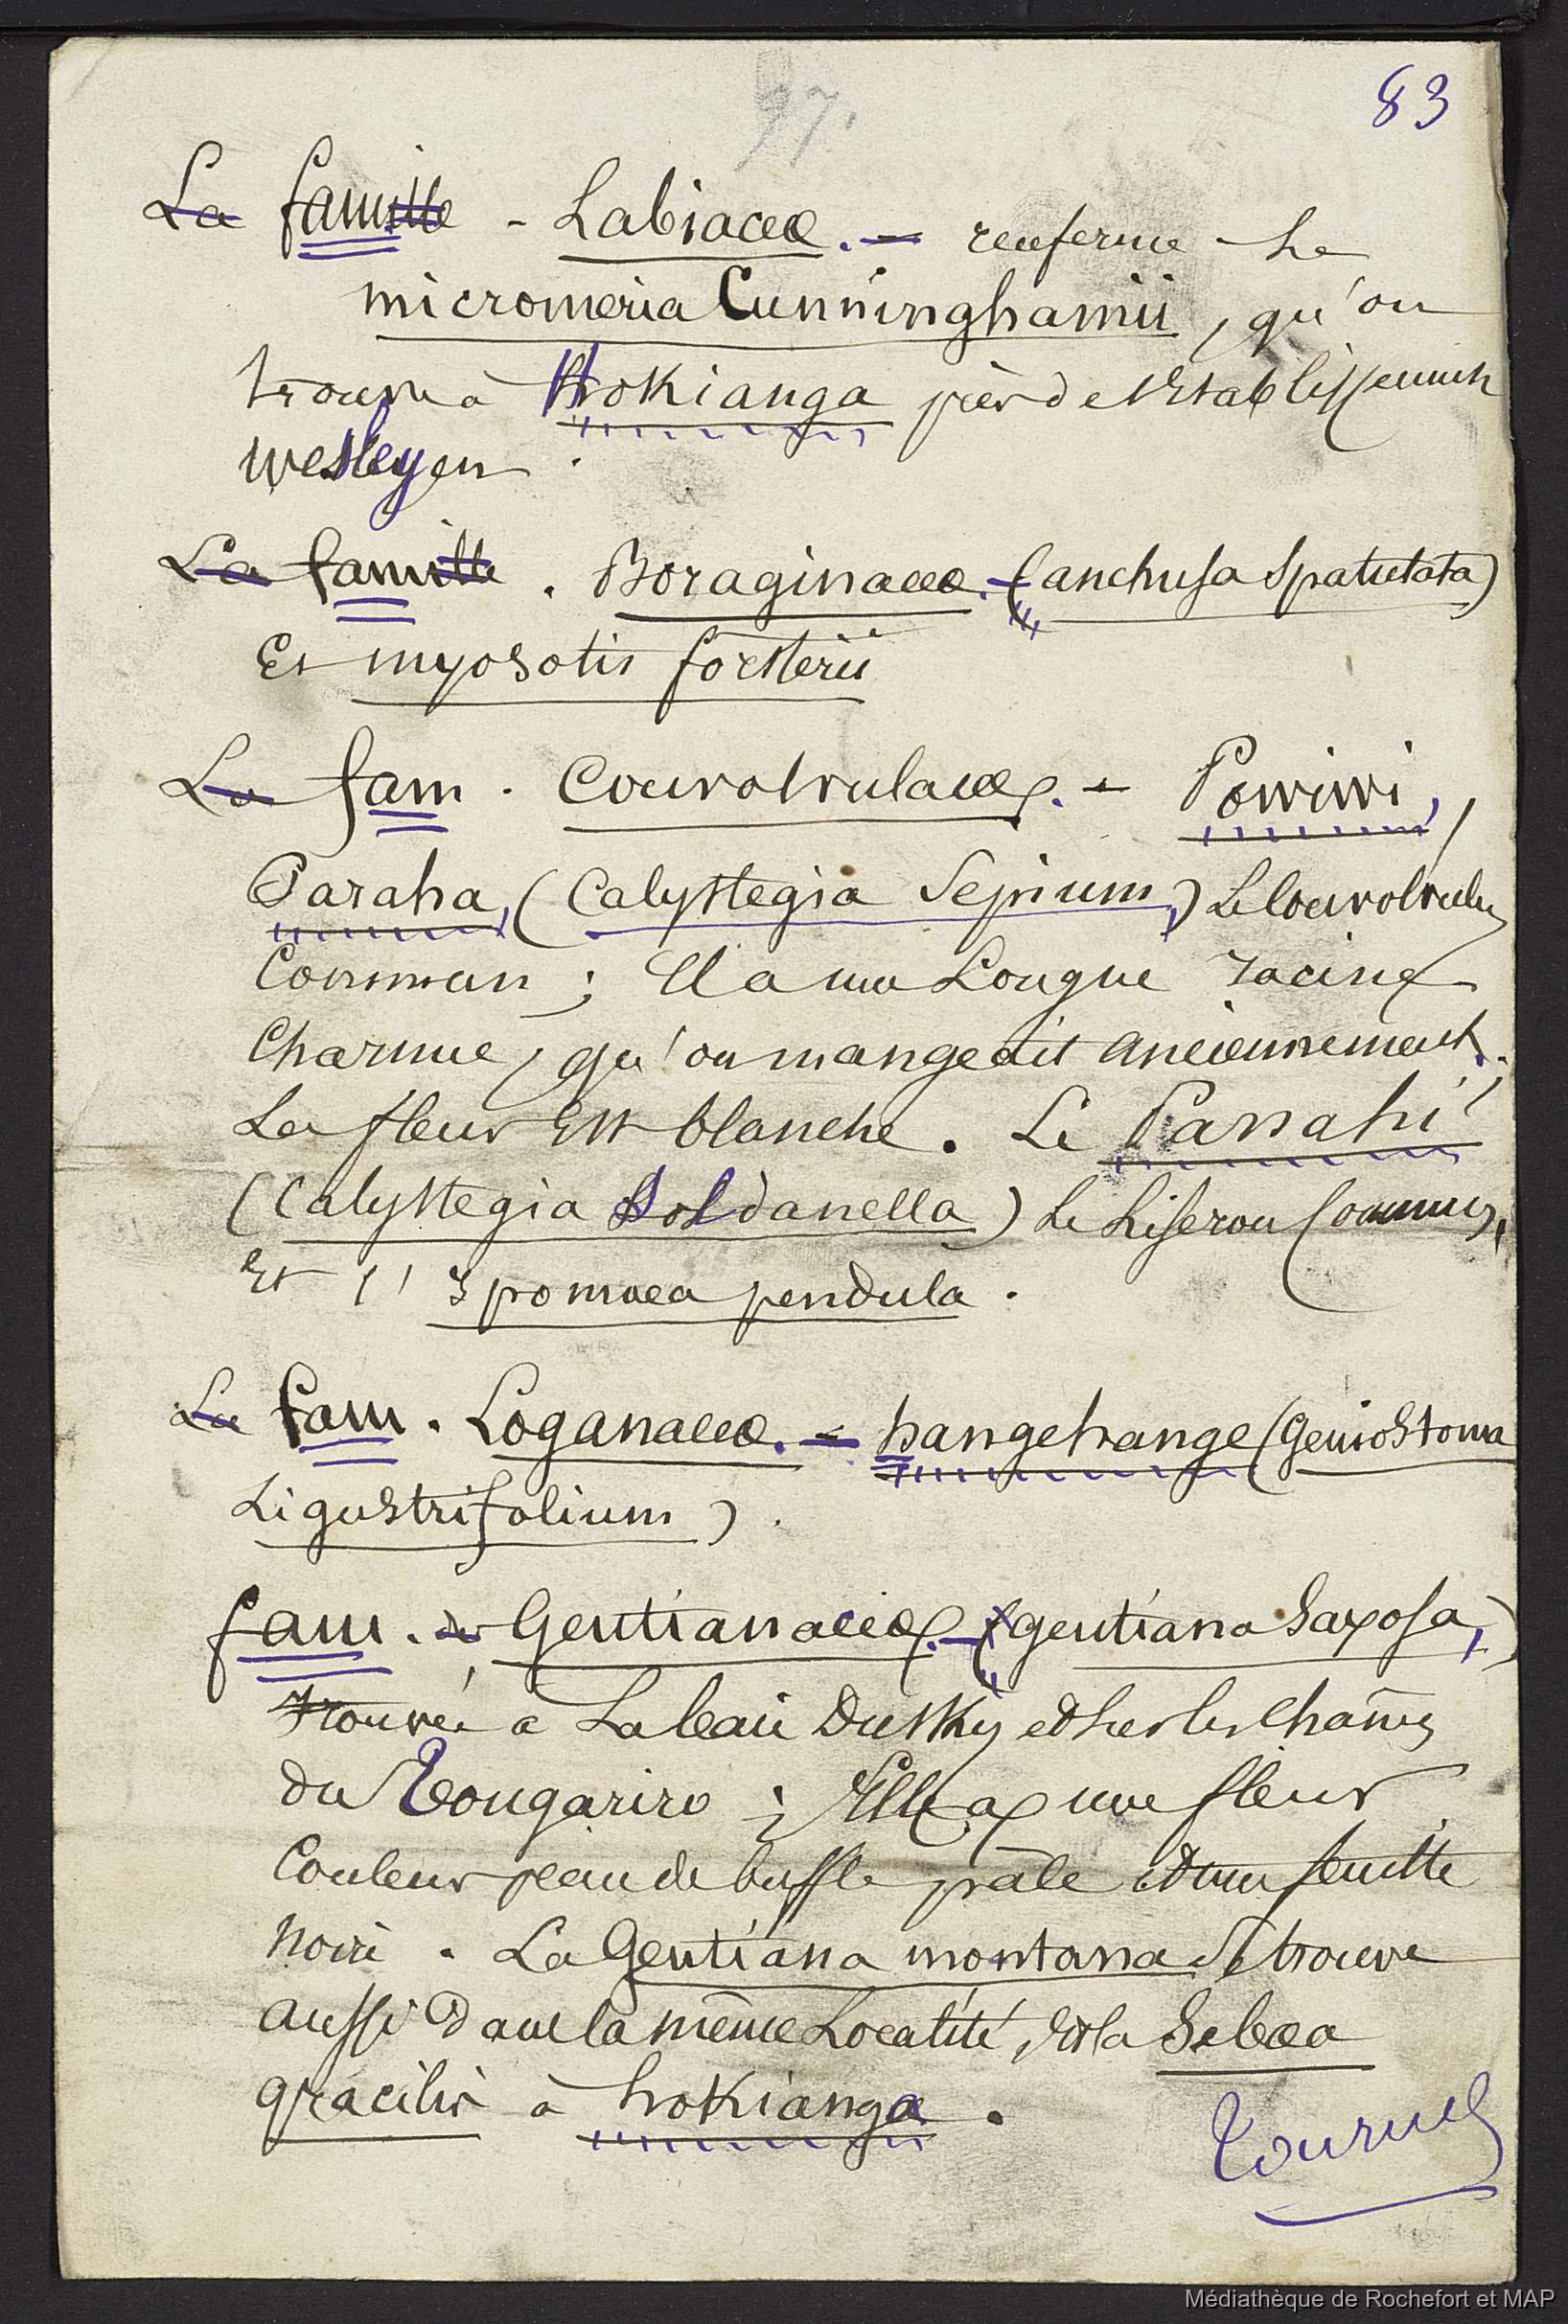 97.
83
La famille - Labiaceæ. - renferme le
micromeria Cunninghamii, qu'on
trouve à Hokianga près de l'établissement
wesleyen.
La famille. Boraginaceæ. - (anchusa Spatulata)
Et myosotis forsterii
La fam. Convolvulaceæ. - Powiwi,
Paraha, (Calystegia Sepium,) Le Convolvulus
Commun ; Il a une Longue racine
Charnue, qu'on mangeait anciennement ;
La fleur Est blanche. Le Panahi
(Calystegia Soldanella) Le Liseron Commun,
Et l'Ipomaea pendula.
La fam. Loganaceæ. - hangehange (Geniostoma
Ligustrifolium).
fam. des Gentianaceæ. - (gentiana Saxosa,)
Trouvée à La baie Dusky et sur les Chaînes
du Tongariro ; Elle a une fleur
Couleur peau de buffle pâle et une feuille
noire. La Gentiana montana Se trouve
aussi dans la même Localité, Et la Sebæa
gracilis à hokianga.
Tournez
Médiathèque de Rochefort et MAP